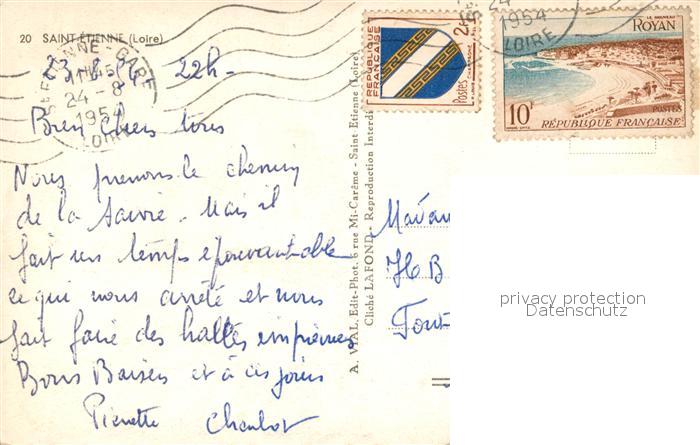 20 SAINT-ÉTIENNE (Loire)
22h-
Bien chers tous
Nous prenons le chemin
de la Savoie. Mais il
fait un temps épouvantable
ce qui nous arrête et nous
fait faire des haltes imprévues
Bons Baisers et à ces jours
Pierrette
ST ETIENNE-GARE
24 - 8
1954
LOIRE
24
1954
LOIRE
RÉPUBLIQUE FRANÇAISE
2F
Postes
LE NOUVEAU
ROYAN
10F
POSTES
RÉPUBLIQUE FRANÇAISE
A. VIAL, Edit-Phot. 6 rue Mi-Carême - Saint-Etienne (Loire)
Cliché LAFOND - Reproduction Interdi
Madam
HB
Tour
privacy protection
Datenschutz